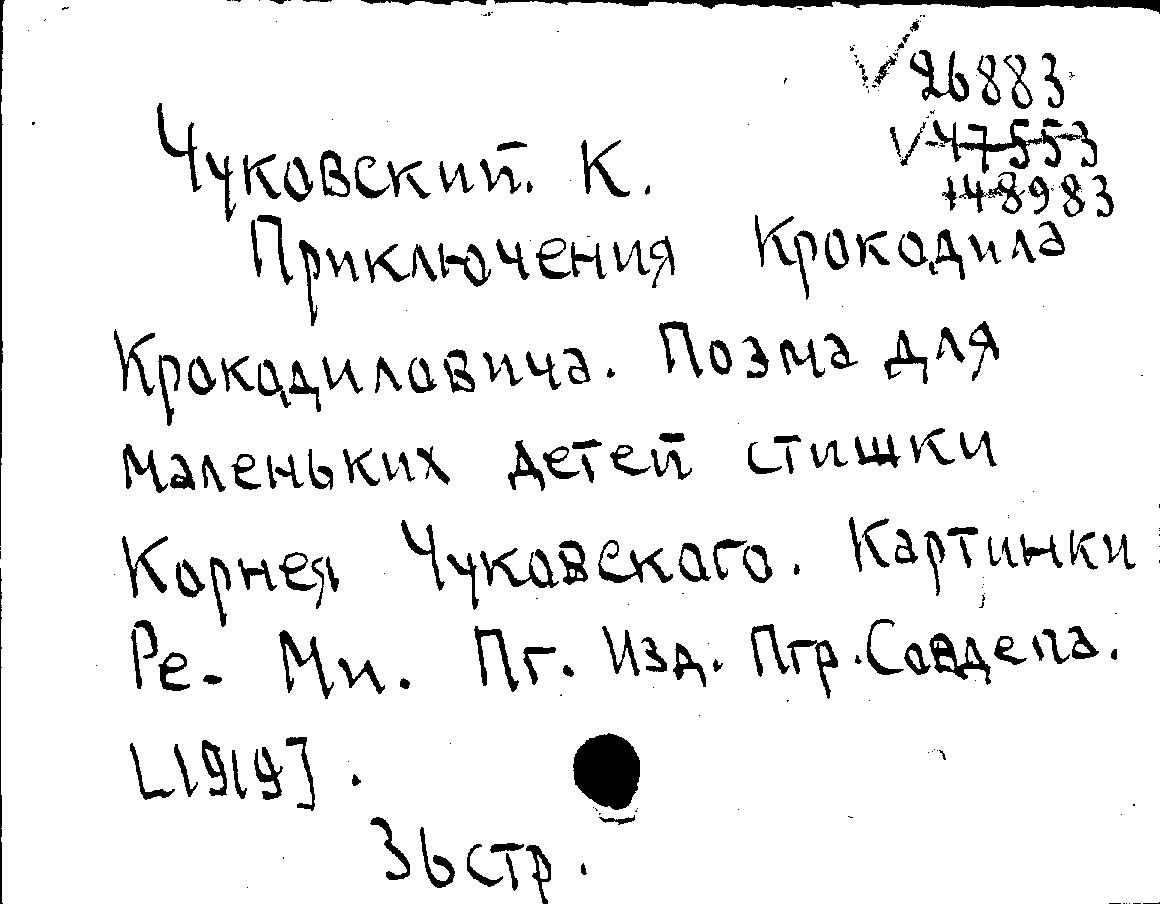 26883
47553
148983
Чуковский. К.
Приключения Крокодила
Крокодиловича. Поэма для
маленьких детей стишки
Корнея Чуковского. Картинки
Ре-Ми. Пг. Изд. Пгр. Совдепа.
[1919].
36 стр.